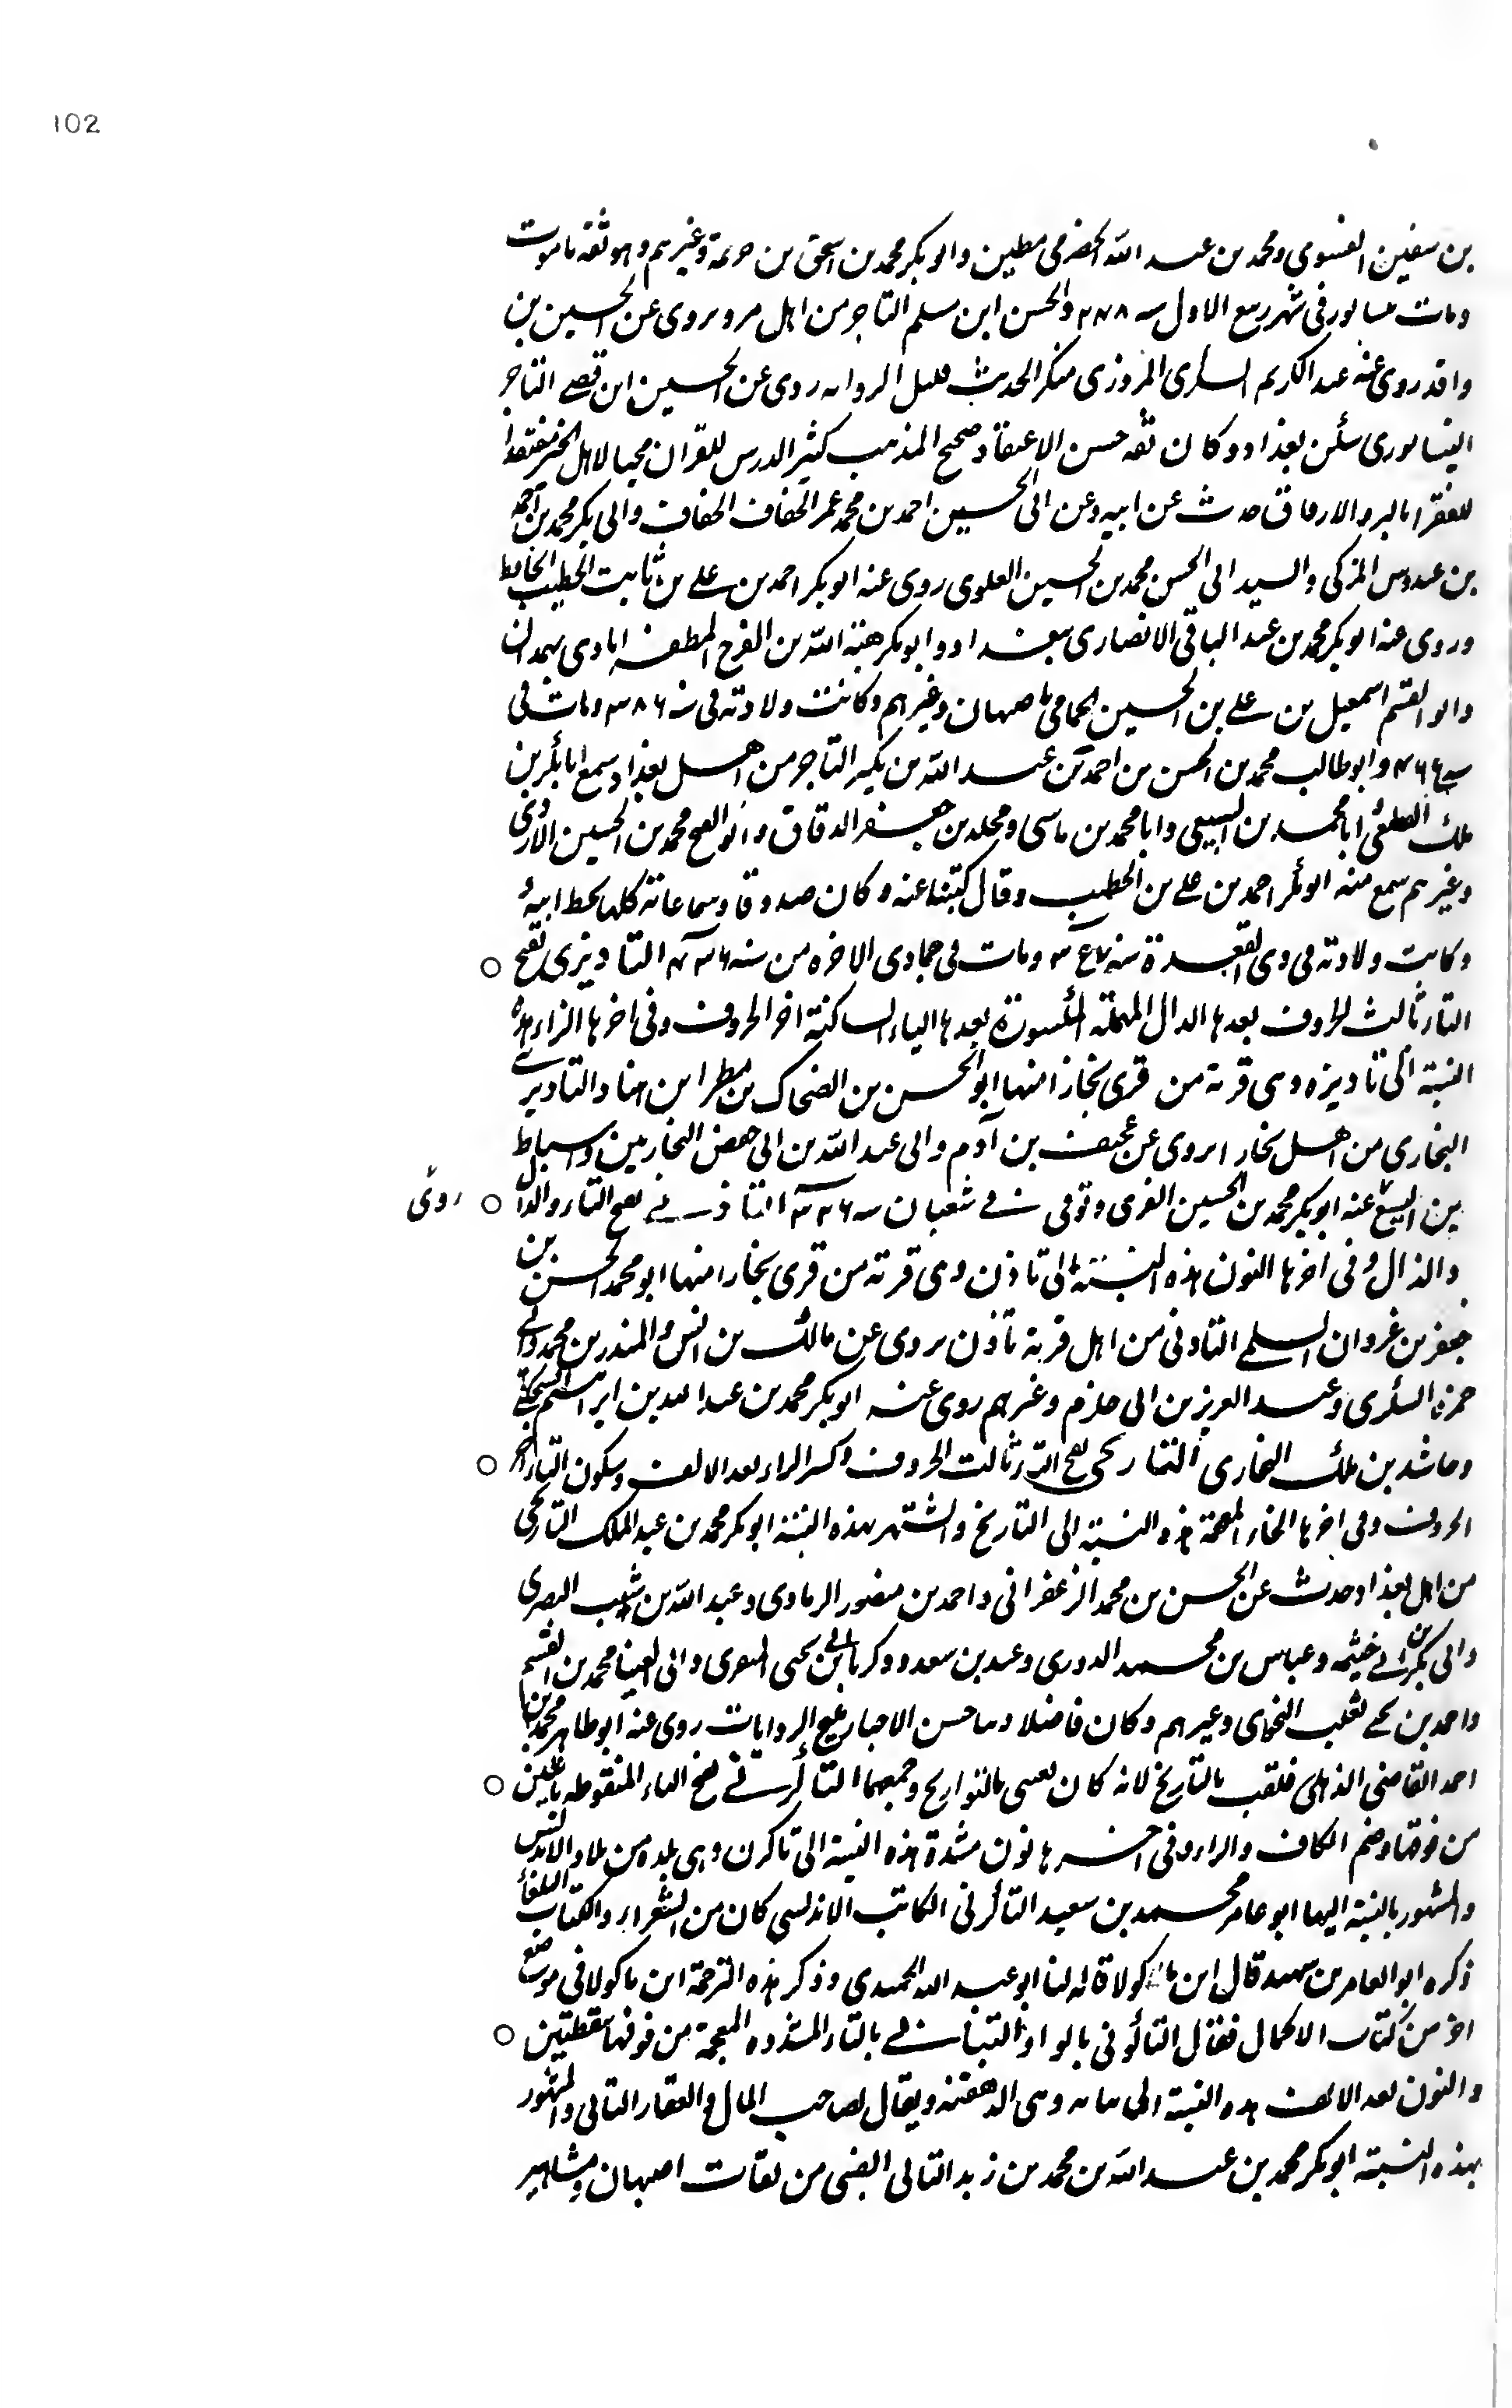 102
بن سفين الفسوي ومحمد بن عبد الله الحضرمي مطين وابو بكر محمد بن اسحق بن خزيمة وغيرهم وهو ثقة مامون
ومات بنيسابور في شهر ربيع الاول سنه والحسن ابن مسلم التاجر من اهل مرو يروى عن الحسين بن
واقد روى عنه عبد الكريم السكرى المروزى منكر الحديث قليل الروايه روى عن الحسين ابن التاجر
النيسابورى سكن بغداد وكان ثقه حسن الاعتقاد صحيح المذهب كثير الدرس للقرآن محبا لاهل الخير مفتقدا
للفقرا بالبر والارفاق حدث عن ابيه وعن ابى الحسين احمد بن محمد عمر الخفاف الخفاف وابى بكر محمد بن احمد
بن عبدوس المزكى والسيد ابى الحسن محمد بن الحسين العلوى روى عنه ابو بكر احمد بن على بن ثابت الخطيب الحافظ
وروى عنه ابو بكر محمد بن عبد الباقى الانصارى ببغداد وابو بكر هبة الله بن الفرج المظفرابادى بهمدان
وابو القسم اسمعيل بن على بن الحسين الحمامى باصبهان وغيرهم وكانت ولادته فى سنه ٣٨٦ ومات فى
سنه ٤٦٤ وابو طالب محمد بن الحسن بن احمد بن عبد الله بن بكير التاجر من اهل بغداد سمع ابا بكر بن
ملك القطيعى ابا محمد بن السبيعى وابا محمد بن ماسى ومخلد بن جعفر الدقاق وابو الفتح محمد بن الحسين الازدى
وغيرهم سمع منه ابو بكر احمد بن على بن الخطيب وقال كتبنا عنه وكان صدوقا وسماعاته كلها بخط ابيه
وكانت ولادته فى ذى القعدة سنه ومات فى جمادى الاخره من سنه ٤٣٦ التاديزى بفتح
التاء ثالث الحروف بعدها الدال المهملة المكسورة بعدها الياء الساكنة اخر الحروف وفى اخرها الزاء هذه
النسبة الى تاديزه وهى قرية من قرى بخارا منها ابو الحسن بن الضحاك بن مطر ابن هناد التاديزى
البخارى من اهل بخارا يروى عن عجيف بن آدم وابى عبد الله بن ابى حفص البخاريين واسباط
بن اليسع عنه ابو بكر محمد بن الحسين المقرى وتوفى فى شعبان سنه ٣٢٦ التاذنى بفتح التاء والدال روى
والذال وفى اخرها النون هذه النسبة الى تاذن وهى قرية من قرى بخارا منها ابو محمد الحسن بن
جعفر بن غزوان السلمى التاذنى من اهل قرية تاذن يروى عن مالك بن انس والمنذر بن محمد وابى
حمزه السكرى وعبد العزيز بن ابى حازم وغيرهم روى عنه ابو بكر محمد بن عبد الله بن ابراهيم
وحاشد بن ملك البخارى التاريخى بفتح التاء ثالث الحروف وكسر الراء بعد الالف وسكون الياء اخر
الحروف وفى اخرها الخاء المعجمة هذه النسبة الى التاريخ واشتهر بهذه النسبة ابو بكر محمد بن عبد الملك التاريخى
من اهل بغداد حدث عن الحسن بن محمد الزعفرانى واحمد بن منصور الرمادى وعبد الله بن شبيب البصرى
وابى بكر بن ابى خيثمه وعباس بن محمد الدورى وعبيد بن سعد وزكريا بن يحيى المقرى وابى العينا محمد بن القسم
واحمد بن يحيى ثعلب النحوى وغيرهم وكان فاضلا حسن الاخبار مليح الروايات روى عنه ابو طاهر محمد بن
احمد القاضى الذهلى فلقب بالتاريخ لانه كان يعنى بالتواريخ وجمعها التاكرنى بفتح التاء المنقوطه باثنين
من فوقها وضم الكاف والراء وفى اخرها نون مشددة هذه النسبة الى تاكرن وهى بلدة من بلاد الاندلس
والمشهور بالنسبة اليها ابو عامر محمد بن سعيد التاكرنى الكاتب الاندلسى كان من الشعراء والكتاب البلغاء
ذكره ابو العامر بن شهيد قال ابن ماكولا قاله لنا ابو عبد الله الحميدى وذكر هذه الترجمة ابن ماكولا فى موضع
اخر من كتاب الاكمال فقال التاكرونى بالواو التانى بالتاء المشدده المعجمة من فوقها بنقطتين
والنون بعد الالف هذه النسبة الى تنايه وهى الدهقنة ويقال لصاحب المال والعقار التانى والمشهور
بهذه النسبة ابو بكر محمد بن عبد الله بن محمد بن زيد التانى الضبى من ثقات اصبهان ومشاهير